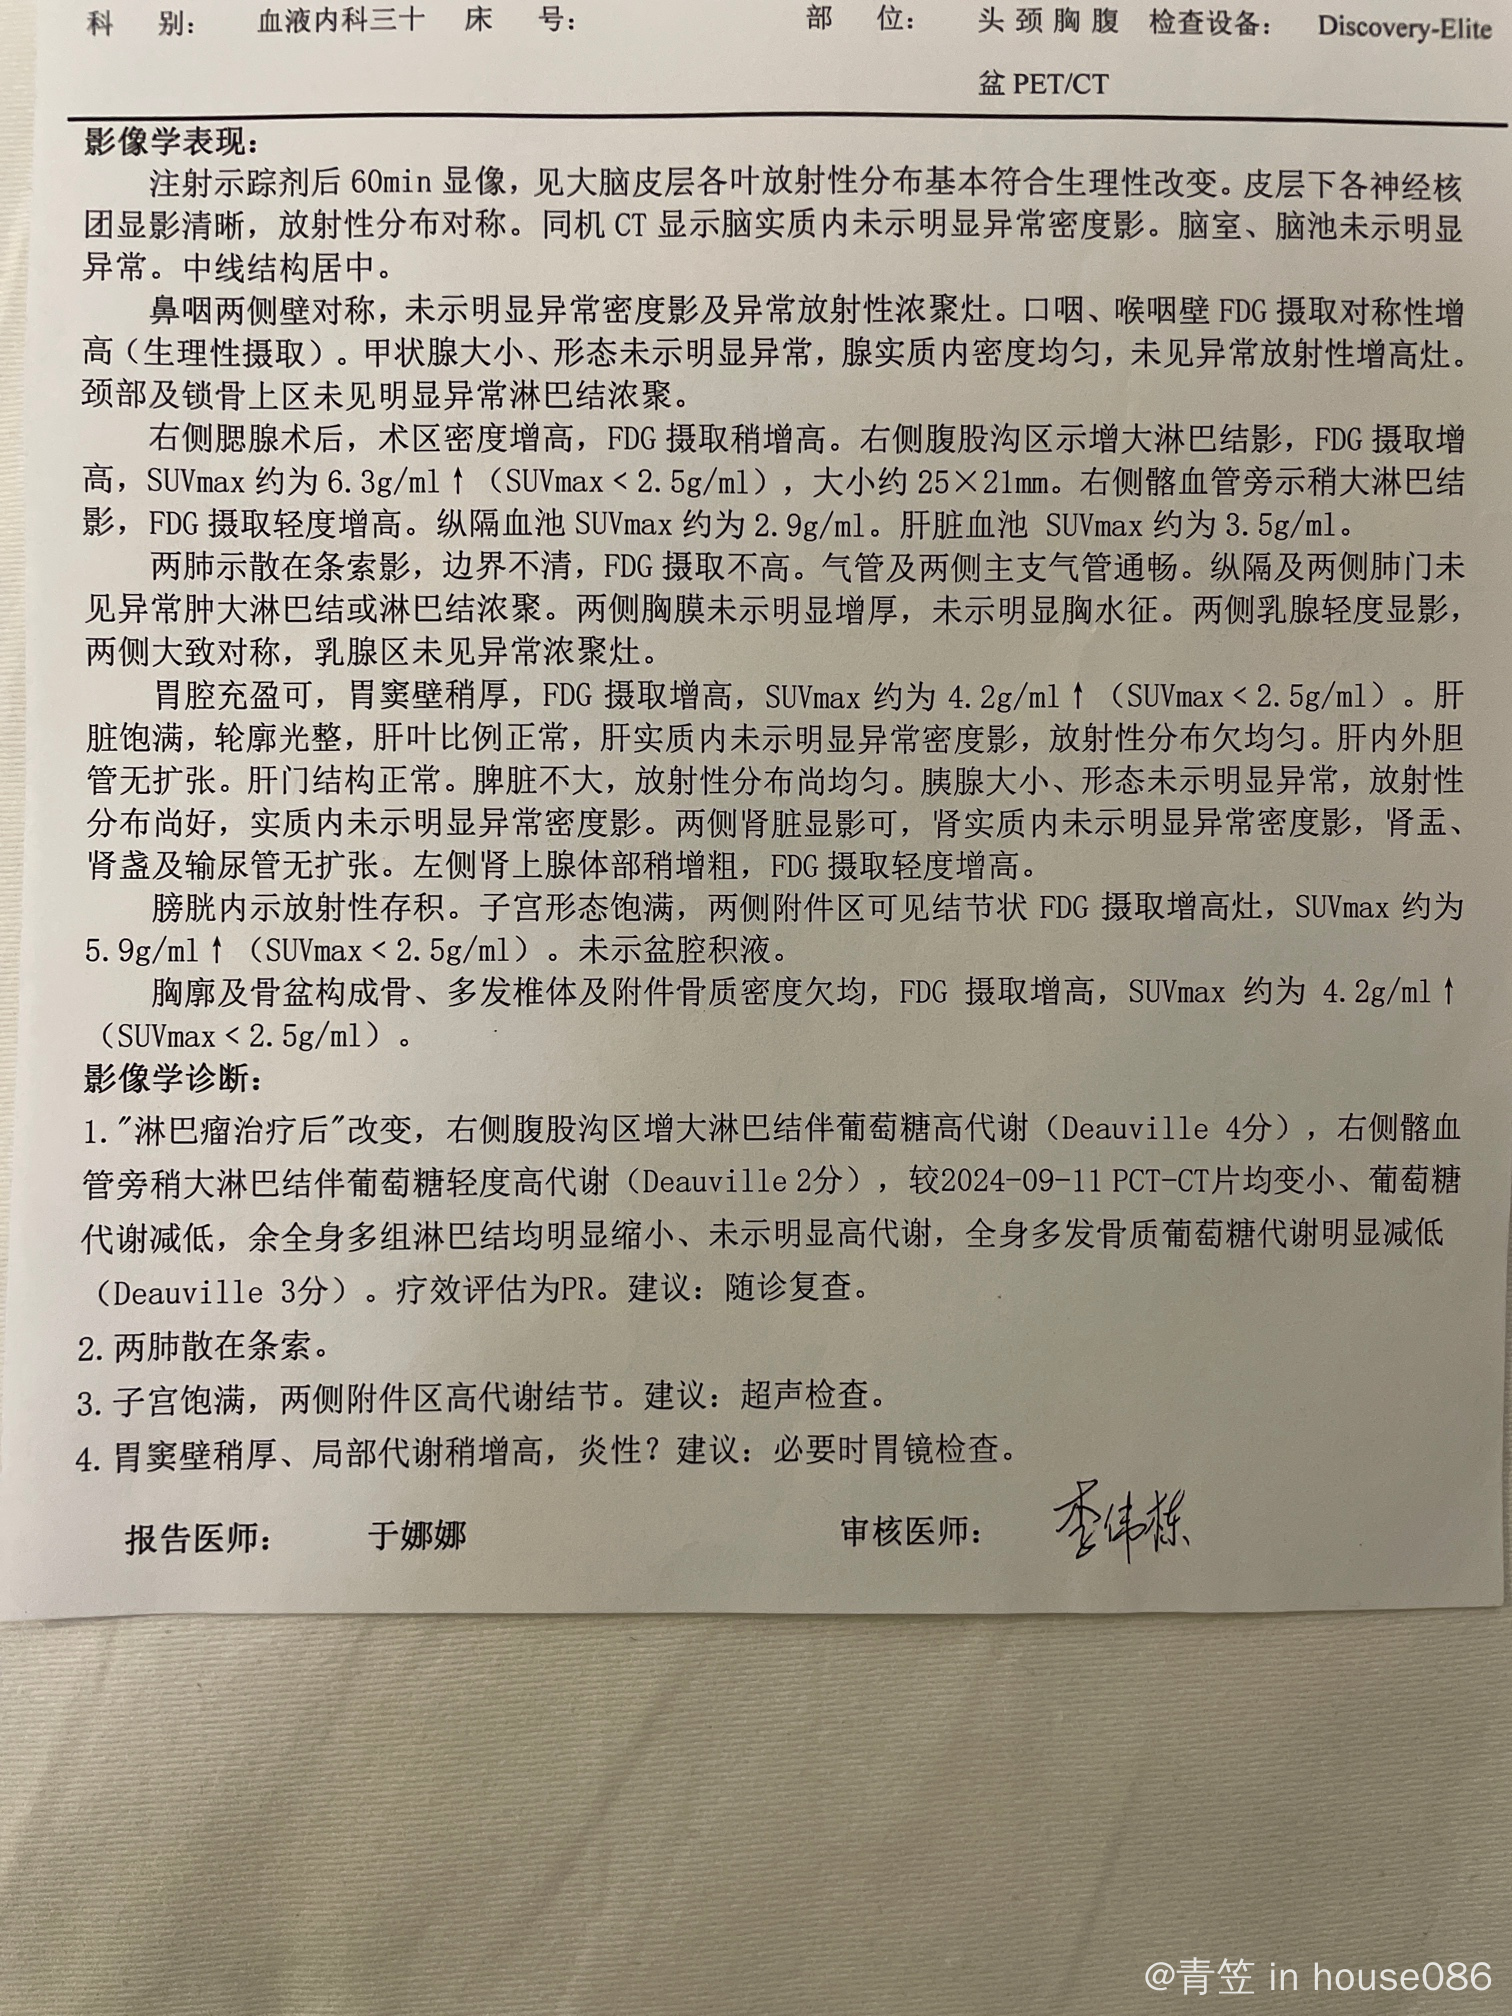 科 别： 血液内科三十 床 号： 部 位： 头颈胸腹 检查设备： Discovery-Elite
盆 PET/CT
影像学表现：
注射示踪剂后 60min 显像，见大脑皮层各叶放射性分布基本符合生理性改变。皮层下各神经核
团显影清晰，放射性分布对称。同机 CT 显示脑实质内未示明显异常密度影。脑室、脑池未示明显
异常。中线结构居中。
鼻咽两侧壁对称，未示明显异常密度影及异常放射性浓聚灶。口咽、喉咽壁 FDG 摄取对称性增
高（生理性摄取）。甲状腺大小、形态未示明显异常，腺实质内密度均匀，未见异常放射性增高灶。
颈部及锁骨上区未见明显异常淋巴结浓聚。
右侧腮腺术后，术区密度增高，FDG 摄取稍增高。右侧腹股沟区示增大淋巴结影，FDG 摄取增
高，SUVmax 约为 6.3g/ml↑（SUVmax＜2.5g/ml），大小约 25×21mm。右侧髂血管旁示稍大淋巴结
影，FDG 摄取轻度增高。纵隔血池 SUVmax 约为 2.9g/ml。肝脏血池 SUVmax 约为 3.5g/ml。
两肺示散在条索影，边界不清，FDG 摄取不高。气管及两侧主支气管通畅。纵隔及两侧肺门未
见异常肿大淋巴结或淋巴结浓聚。两侧胸膜未示明显增厚，未示明显胸水征。两侧乳腺轻度显影，
两侧大致对称，乳腺区未见异常浓聚灶。
胃腔充盈可，胃窦壁稍厚，FDG 摄取增高，SUVmax 约为 4.2g/ml↑（SUVmax＜2.5g/ml）。肝
脏饱满，轮廓光整，肝叶比例正常，肝实质内未示明显异常密度影，放射性分布欠均匀。肝内外胆
管无扩张。肝门结构正常。脾脏不大，放射性分布尚均匀。胰腺大小、形态未示明显异常，放射性
分布尚好，实质内未示明显异常密度影。两侧肾脏显影可，肾实质内未示明显异常密度影，肾盂、
肾盏及输尿管无扩张。左侧肾上腺体部稍增粗，FDG 摄取轻度增高。
膀胱内示放射性存积。子宫形态饱满，两侧附件区可见结节状 FDG 摄取增高灶，SUVmax 约为
5.9g/ml↑（SUVmax＜2.5g/ml）。未示盆腔积液。
胸廓及骨盆构成骨、多发椎体及附件骨质密度欠均，FDG 摄取增高，SUVmax 约为 4.2g/ml↑
（SUVmax＜2.5g/ml）。
影像学诊断：
1."淋巴瘤治疗后"改变，右侧腹股沟区增大淋巴结伴葡萄糖高代谢（Deauville 4分），右侧髂血
管旁稍大淋巴结伴葡萄糖轻度高代谢（Deauville 2分），较2024-09-11 PCT-CT片均变小、葡萄糖
代谢减低，余全身多组淋巴结均明显缩小、未示明显高代谢，全身多发骨质葡萄糖代谢明显减低
（Deauville 3分）。疗效评估为PR。建议：随诊复查。
2. 两肺散在条索。
3. 子宫饱满，两侧附件区高代谢结节。建议：超声检查。
4. 胃窦壁稍厚、局部代谢稍增高，炎性？建议：必要时胃镜检查。
报告医师： 于娜娜 审核医师： 李伟栋
@青笠 in house086